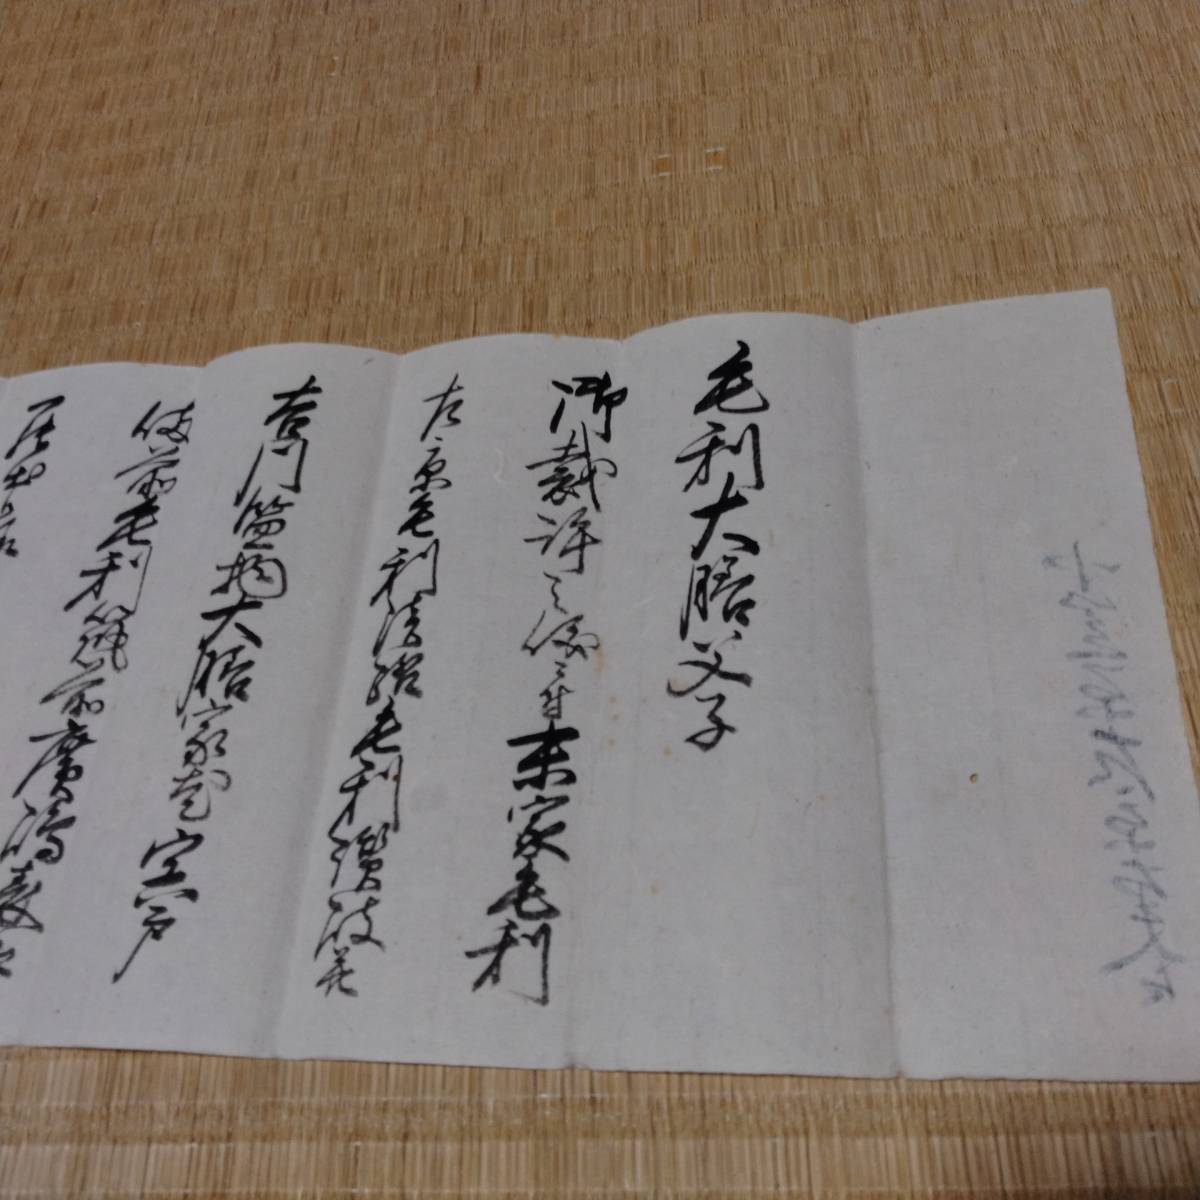 毛利大膳父子
御裁許之儀ニ付末家毛利
左京毛利淡路毛利讃岐并
吉川監物大膳家老宍戸
備前毛利筑前廣嶋表江